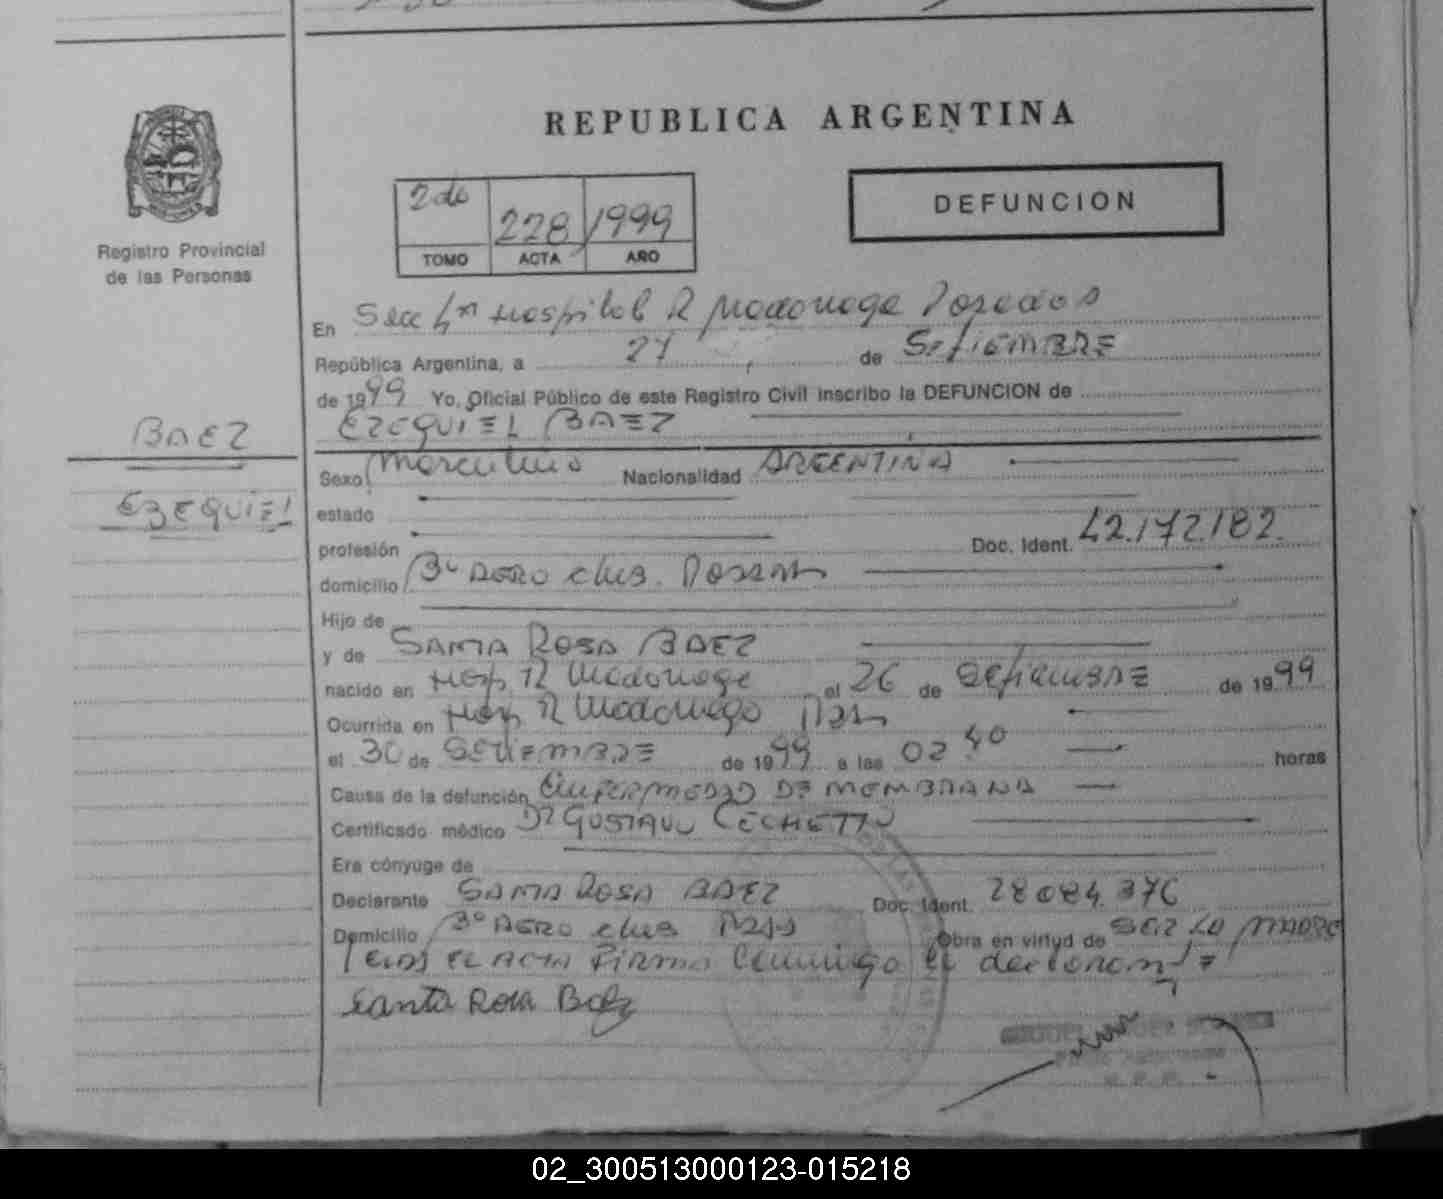 REPUBLICA ARGENTINA
DEFUNCION
2do 228 1999
TOMO ACTA AÑO
Registro Provincial
de las Personas
En Secc Hospital R Madariaga Posadas
República Argentina, a 27 de Setiembre
de 1999 Yo, Oficial Público de este Registro Civil inscribo la DEFUNCION de
EZEQUIEL BAEZ
BAEZ
EZEQUIEL
Sexo Masculino Nacionalidad ARGENTINA
estado
profesión Doc. Ident. 42.172.182
domicilio Bº AERO club.
Hijo de
y de SANTA ROSA BAEZ
nacido en Hosp R Madariaga el 26 de Setiembre de 1999
Ocurrida en Hosp R Madariaga
el 30 de SETIEMBRE de 1999 a las 02 40 horas
Causa de la defunción ENFERMEDAD DE MEMBRANA
Certificado médico Dr GUSTAVO CECHETTO
Era cónyuge de
Declarante SANTA ROSA BAEZ Doc. Ident. 28 084 376
Domicilio Bº AERO club Obra en virtud de SER LA MADRE
EL ACTA FIRMA conmigo el declarante
Santa Rosa Baez
02_300513000123-015218